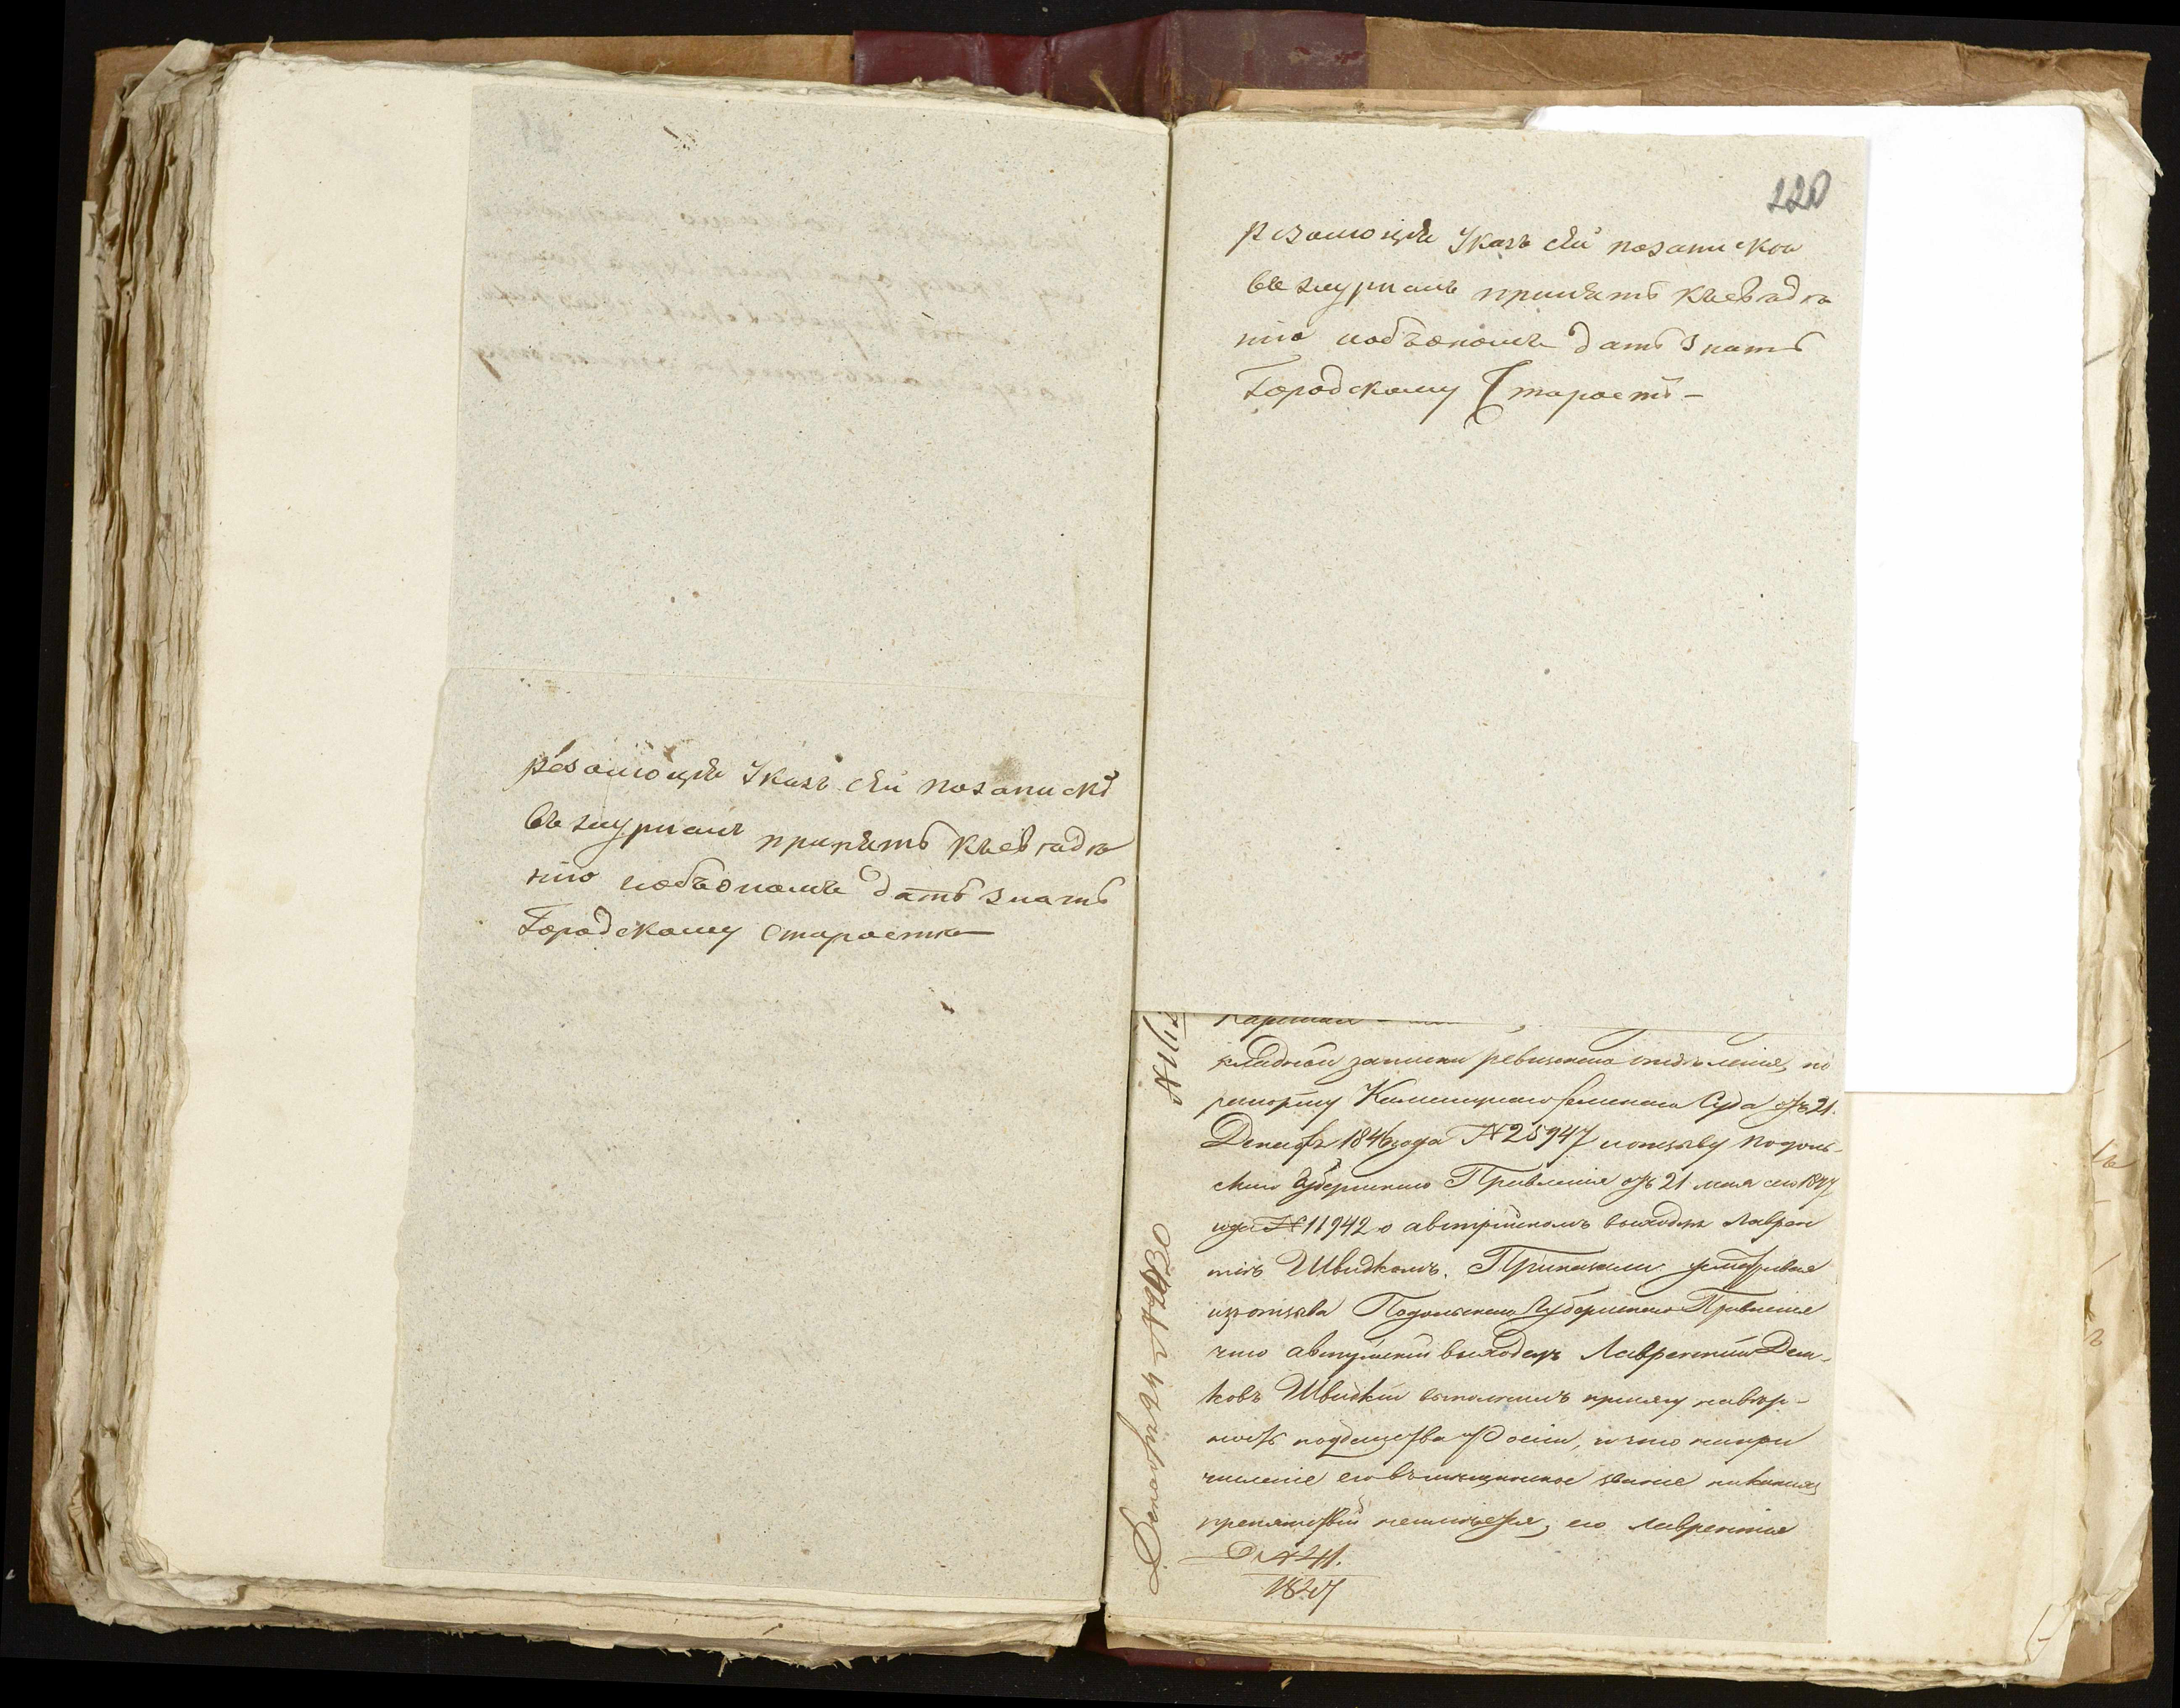 резолюція Указъ сей позаписки
въ журналъ принять къ свѣдѣ
нію и объ ономъ дать знать
Городскому Старостѣ
220
резолюція Указъ сей позапискои
въ журналъ принять къ свѣдѣ
нію и объ ономъ дать знать
Городскому Старостѣ —
кладной записки ревизскаго отдѣленія, по
рапорту Каменецкаго Земскаго Суда отъ 21.
Декабр 1846 года № 25947 и отзыву Подоль-
скаго Губернскаго Правленія отъ 21 мая сего 1847
года № 11942 о австрійскомъ выходцѣ Лаврен
тіѣ Швидкомъ. Приказали: усматривая
изъ отзыва Подольскаго Губернскаго Правленія
что австрійскій выходецъ Лаврентій Дем-
ковъ Швидкій выполнилъ присягу на вѣр-
ность подданства Россіи, и что на при
численіе его въ мѣщанское званіе никакихъ
препятствій не имѣется, его Лаврентія
Д № 41.
1847